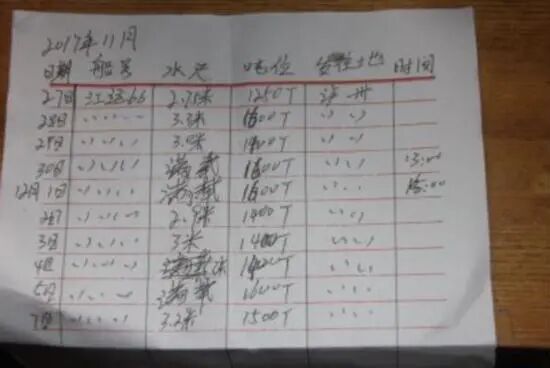 2017年11月
日期 船号 水尺 吨位 时间
27日 2.75米 1250T
28日 〃〃〃〃 3.3米 1600T 〃〃
29日 〃〃〃〃 3.0米 1400T 〃〃
30日 〃〃〃〃 满载 1600T 〃〃〃 13:00
12月1日 〃〃〃〃 满载 1600T 〃〃〃
2日 〃〃〃〃 2.9米 1400T 〃〃〃
3日 〃〃〃〃 3米 1400T 〃〃〃
4日 〃〃〃〃 〃〃〃〃
5日 〃〃〃〃 满载 1600T 〃〃〃
7日 〃〃〃〃 3.2米 1500T 〃〃〃